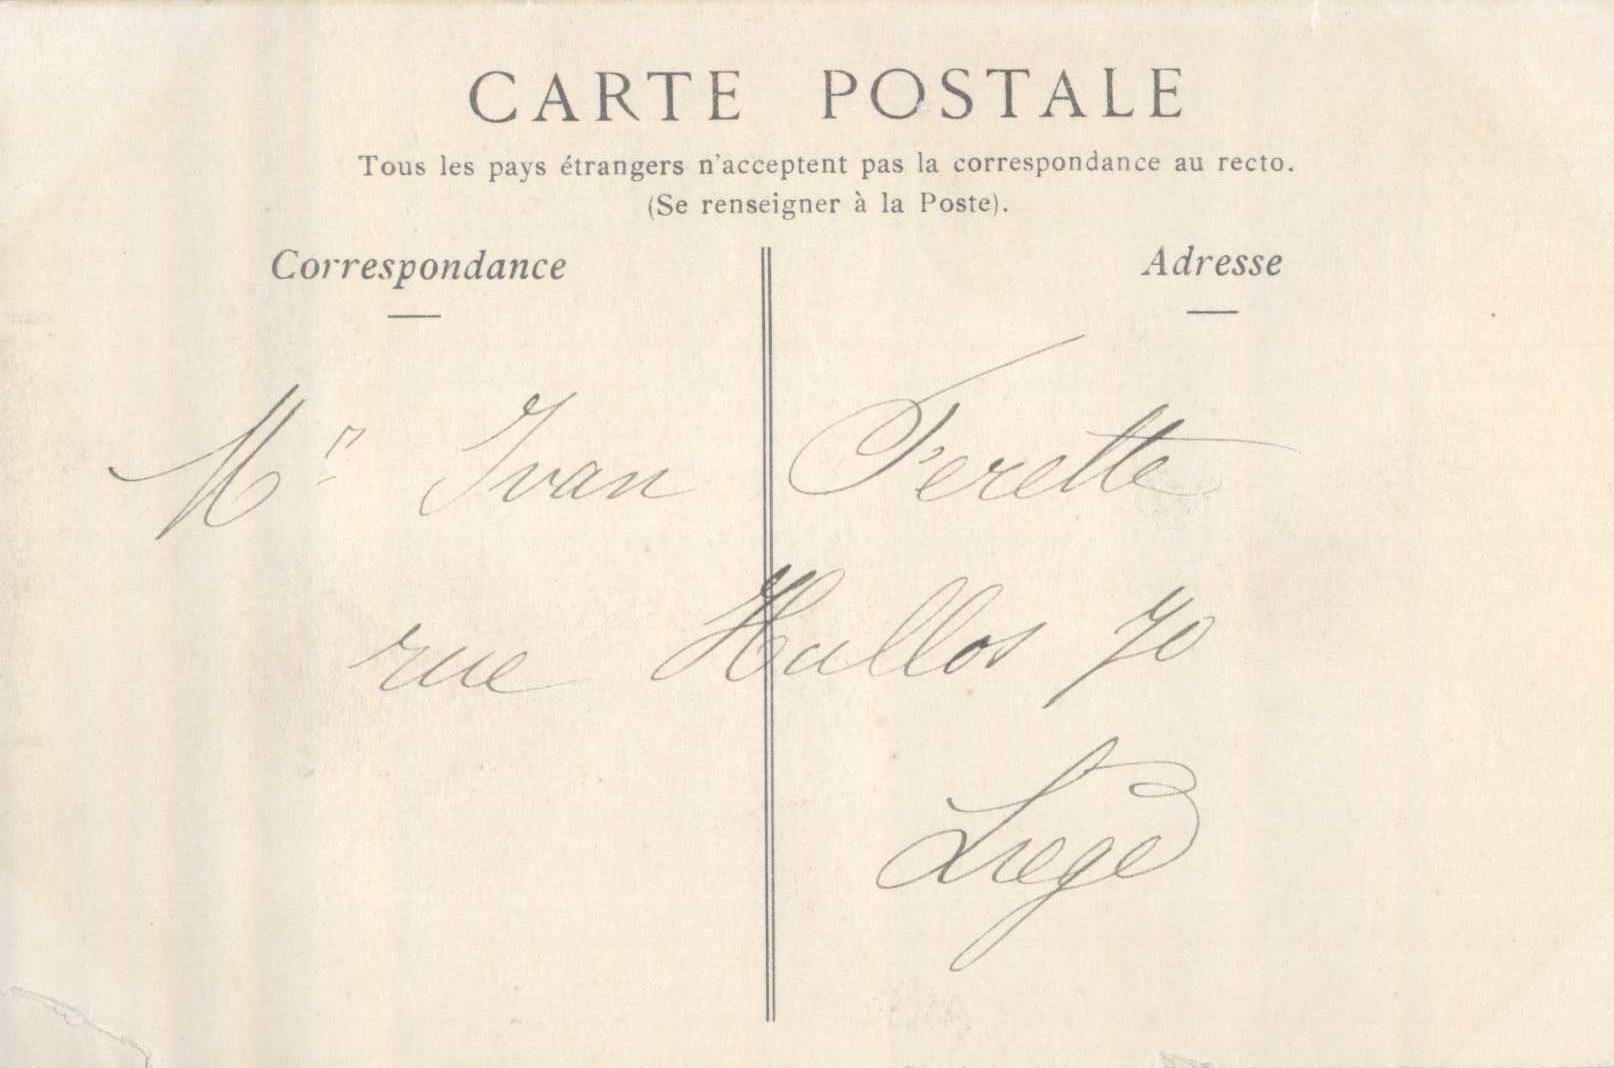 CARTE POSTALE
Tous les pays étrangers n'acceptent pas la correspondance au recto.
(Se renseigner à la Poste).
Correspondance
Adresse
Mr Ivan Ferette
rue Hullos 70
Liege